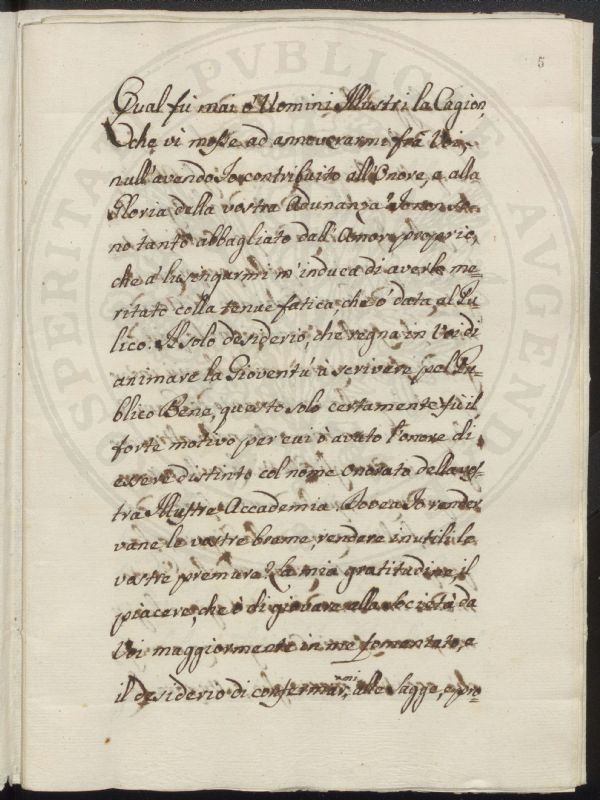 5
Qual fù mai o' Uomini Illustri la Cagion,
che vi mosse ad annoverarmi frà Voi,
null'avendo Io contribuito all'Onore, e alla
Gloria della vostra Adunanza? Io non so=
no tanto abbagliato dall'Amor proprio,
che a' lusingarmi m'induca di averlo me=
ritato colla tenue fatica, che ò data al Pu
lico. Il solo desiderio, che regna in Voi di
animare la Gioventù a scrivere pel Pu=
blico Bene, questo solo certamente fù il
forte motivo per cui ò avuto l'onore di
essere distinto col nome onorato della vos=
tra Illustre Accademia. Dovea Io render
vane le vostre brame, rendere inutili le
vostre premure? La mia gratitudine, il
piacere, che ò di giovare alla Società da
Voi maggiormente in me fomentato, e
il desiderio di confermarmi, alle sagge, e pro=
PROSPERITATI PUBLICAE AUGENDAE